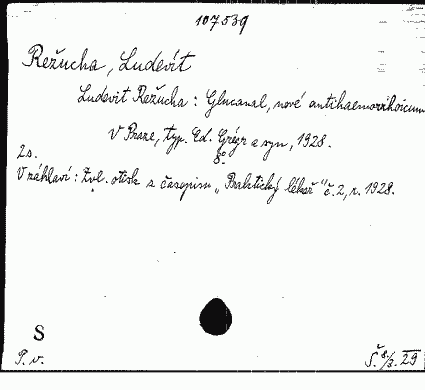 107539
Režucha, Ludevít
Ludevit Režucha : Glucanal, nové antihaemorrhoicum
V Praze, typ. Ed. Grégr a syn, 1928.
8°
2 s.
V záhlaví : Zvl. otisk z časopisu „Praktický lékař" č. 2, r. 1928.
S
P. v.
Š. 8/3. 29